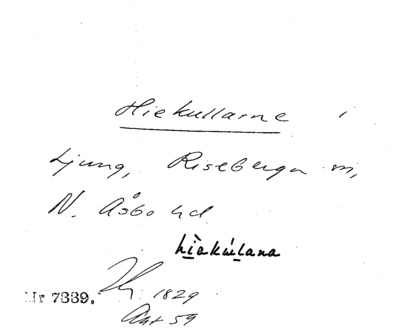 Hiekullarne i
Ljung, Riseberga sn,
N. Åsbo hd
hìekúlana
Nr 7339. 1829
Ant 59